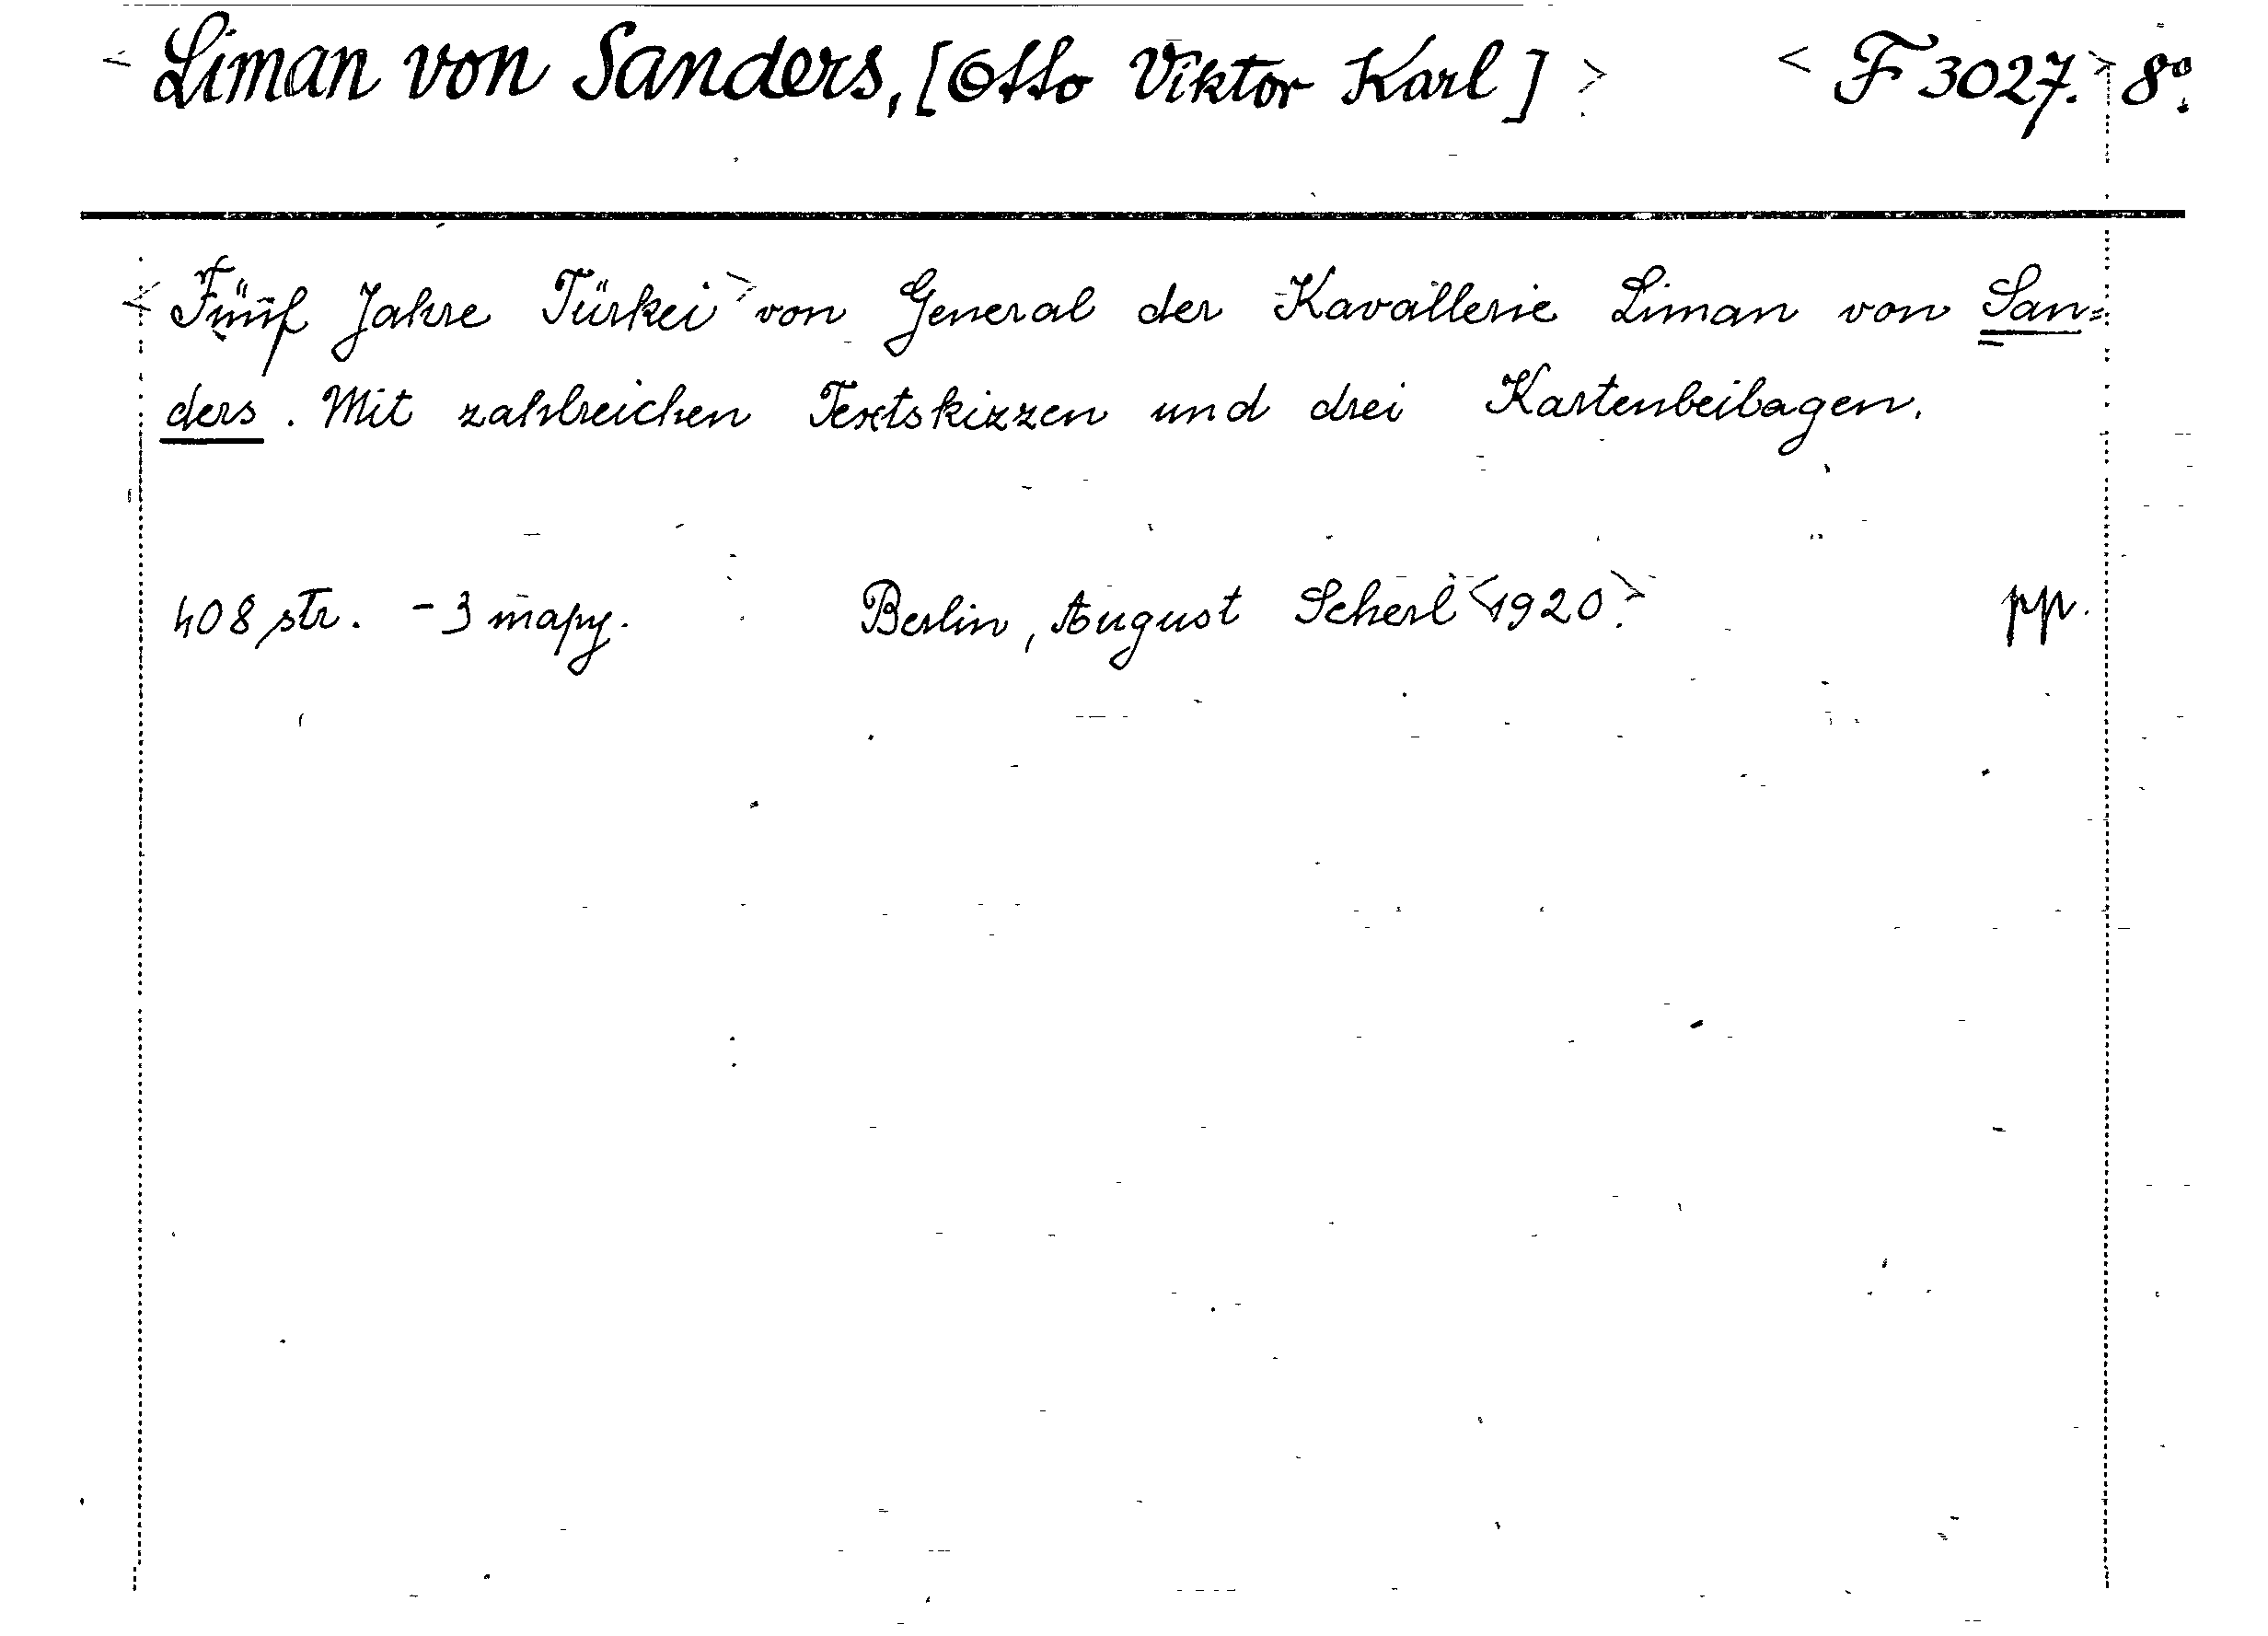 < Liman von Sanders, [Otto Viktor Karl] > < F 3027. > 8°.
< Fünf Jahre Türkei > von General der Kavallerie Liman von San=
ders. Mit zahlreichen Textskizzen und drei Kartenbeilagen.
408 str. - 3 mapy. Berlin, August Scherl < 1920. > pp.